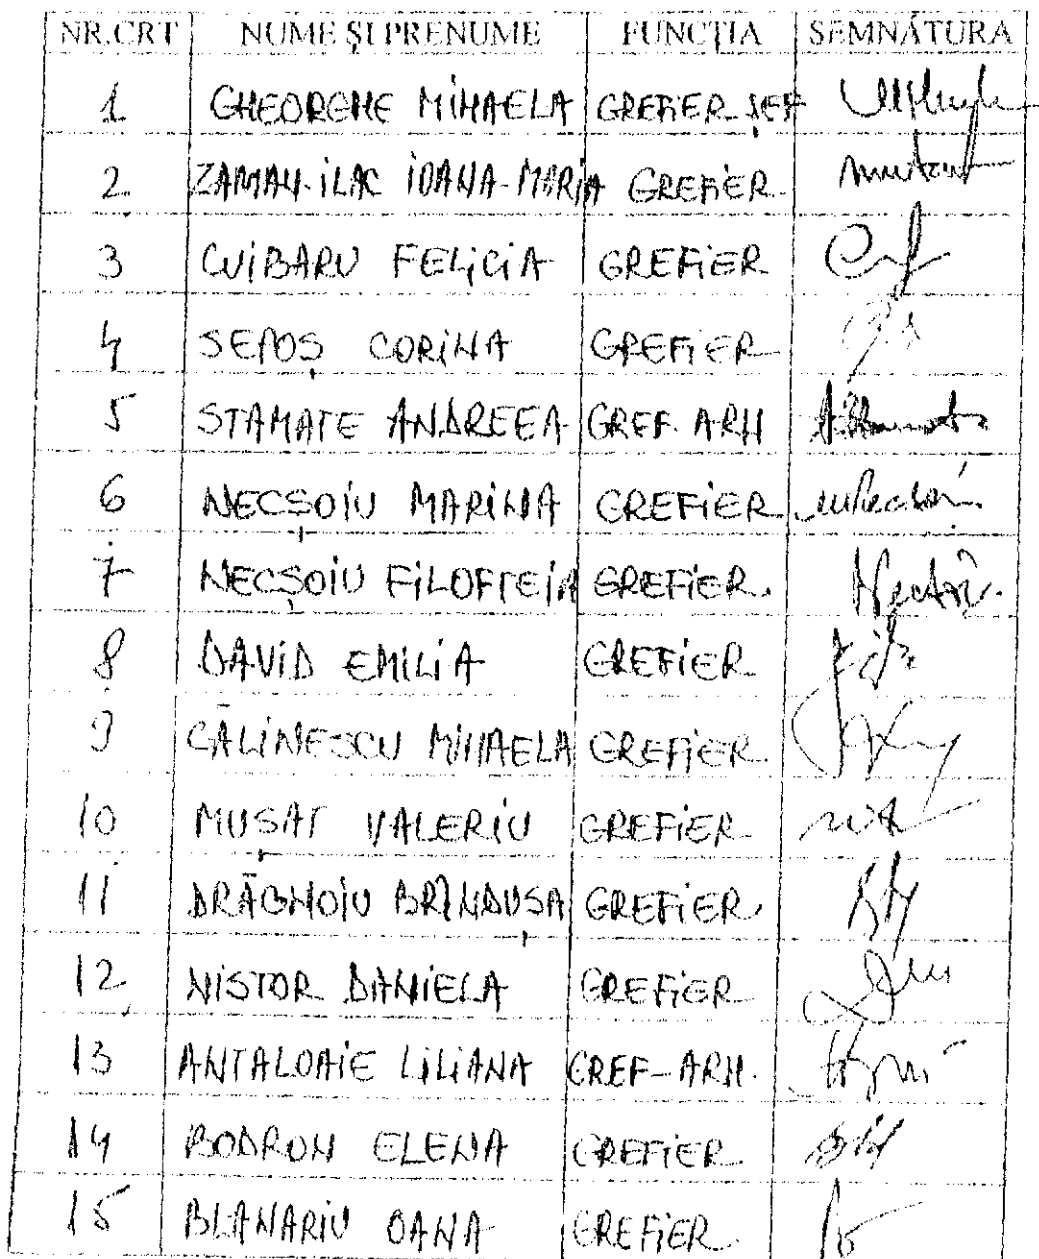 NR.CRT NUME ȘI PRENUME FUNCȚIA SEMNĂTURA
1 GHEORGHE MIHAELA GREFIER ȘEF
2 IOANA-MARIA GREFIER
3 CUIBARU FELICIA GREFIER
4 SEPOȘ CORINA GREFIER
5 STAMATE ANDREEA GREF. ARH
6 NECȘOIU MARINA GREFIER
7 NECȘOIU FILOFTEIA GREFIER.
8 DAVID EMILIA GREFIER
9 CĂLINESCU MIHAELA GREFIER
10 MUȘAT VALERIU GREFIER
11 DRĂGHOIU BRÎNDUȘA GREFIER
12 NISTOR DANIELA GREFIER
13 ANTALOAIE LILIANA GREF-ARH.
14 BODRON ELENA GREFIER
15 BLANARIU OANA GREFIER